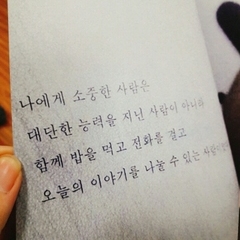 나에게 소중한 사람은
대단한 능력을 지닌 사람이 아니라
함께 밥을 먹고 전화를 걸고
오늘의 이야기를 나눌 수 있는 사람